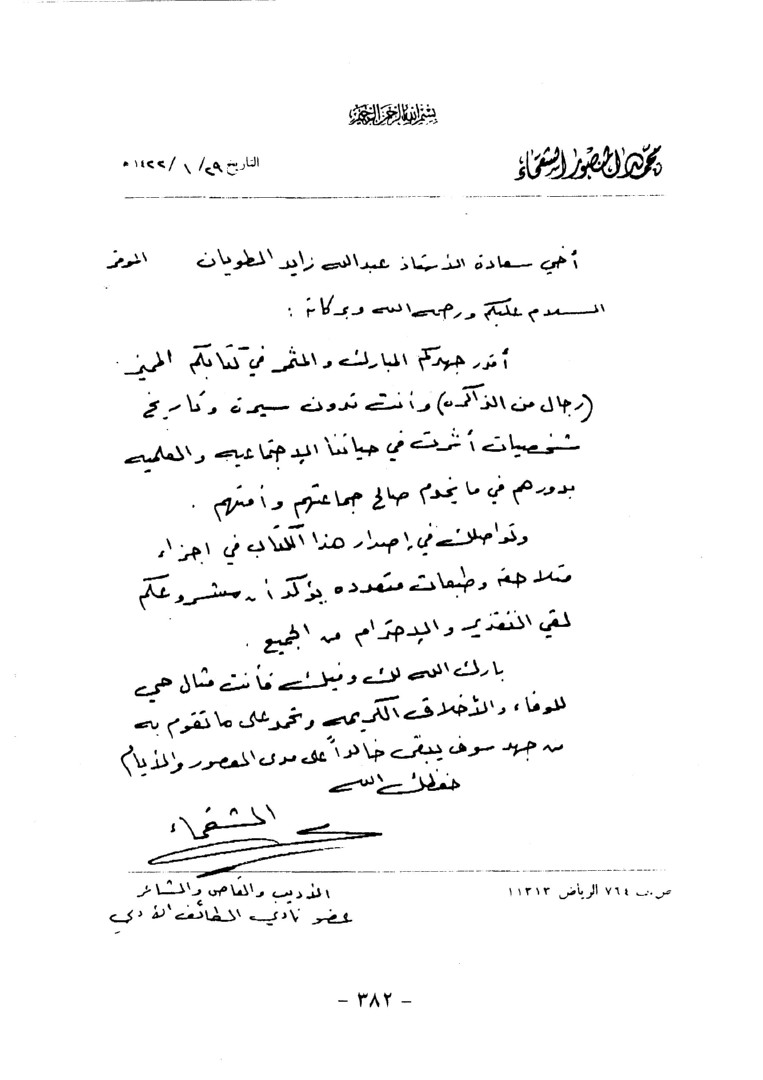 بسم الله الرحمن الرحيم
محمد المنصور الشقحاء
التاريخ ٢٩/ ١ /١٤٢٢ ه
أخي سعادة الأستاذ عبدالله زايد الطويان الموقر
السلام عليكم ورحمة الله وبركاته :
أقدر جهدكم المبارك والمثمر في كتابكم المميز
(رجال من الذاكره) وأنت تدون سيرة وتاريخ
شخصيات أثرت في حياتنا الإجتماعيه والعلميه
بدورهم في ما يخدم صالح جماعتهم وأمتهم .
وتواصلك في إصدار هذا الكتاب في اجزاء
متلاحقه وطبعات متعدده يؤكد أن مشروعكم
لقي التقدير والإحترام من الجميع .
بارك الله لك وفيك فأنت مثال حي
للوفاء والأخلاق الكريمه وتحمد على ما تقوم به
من جهد سوف يبقى خالداً على مدى العصور والأيام
حفظك الله
الشقحاء
ص.ب ٧٦٤ الرياض ١١٣١٣
الأديب والقاص والشاعر
عضو نادي الطائف الأدبي
- ٣٨٢ -